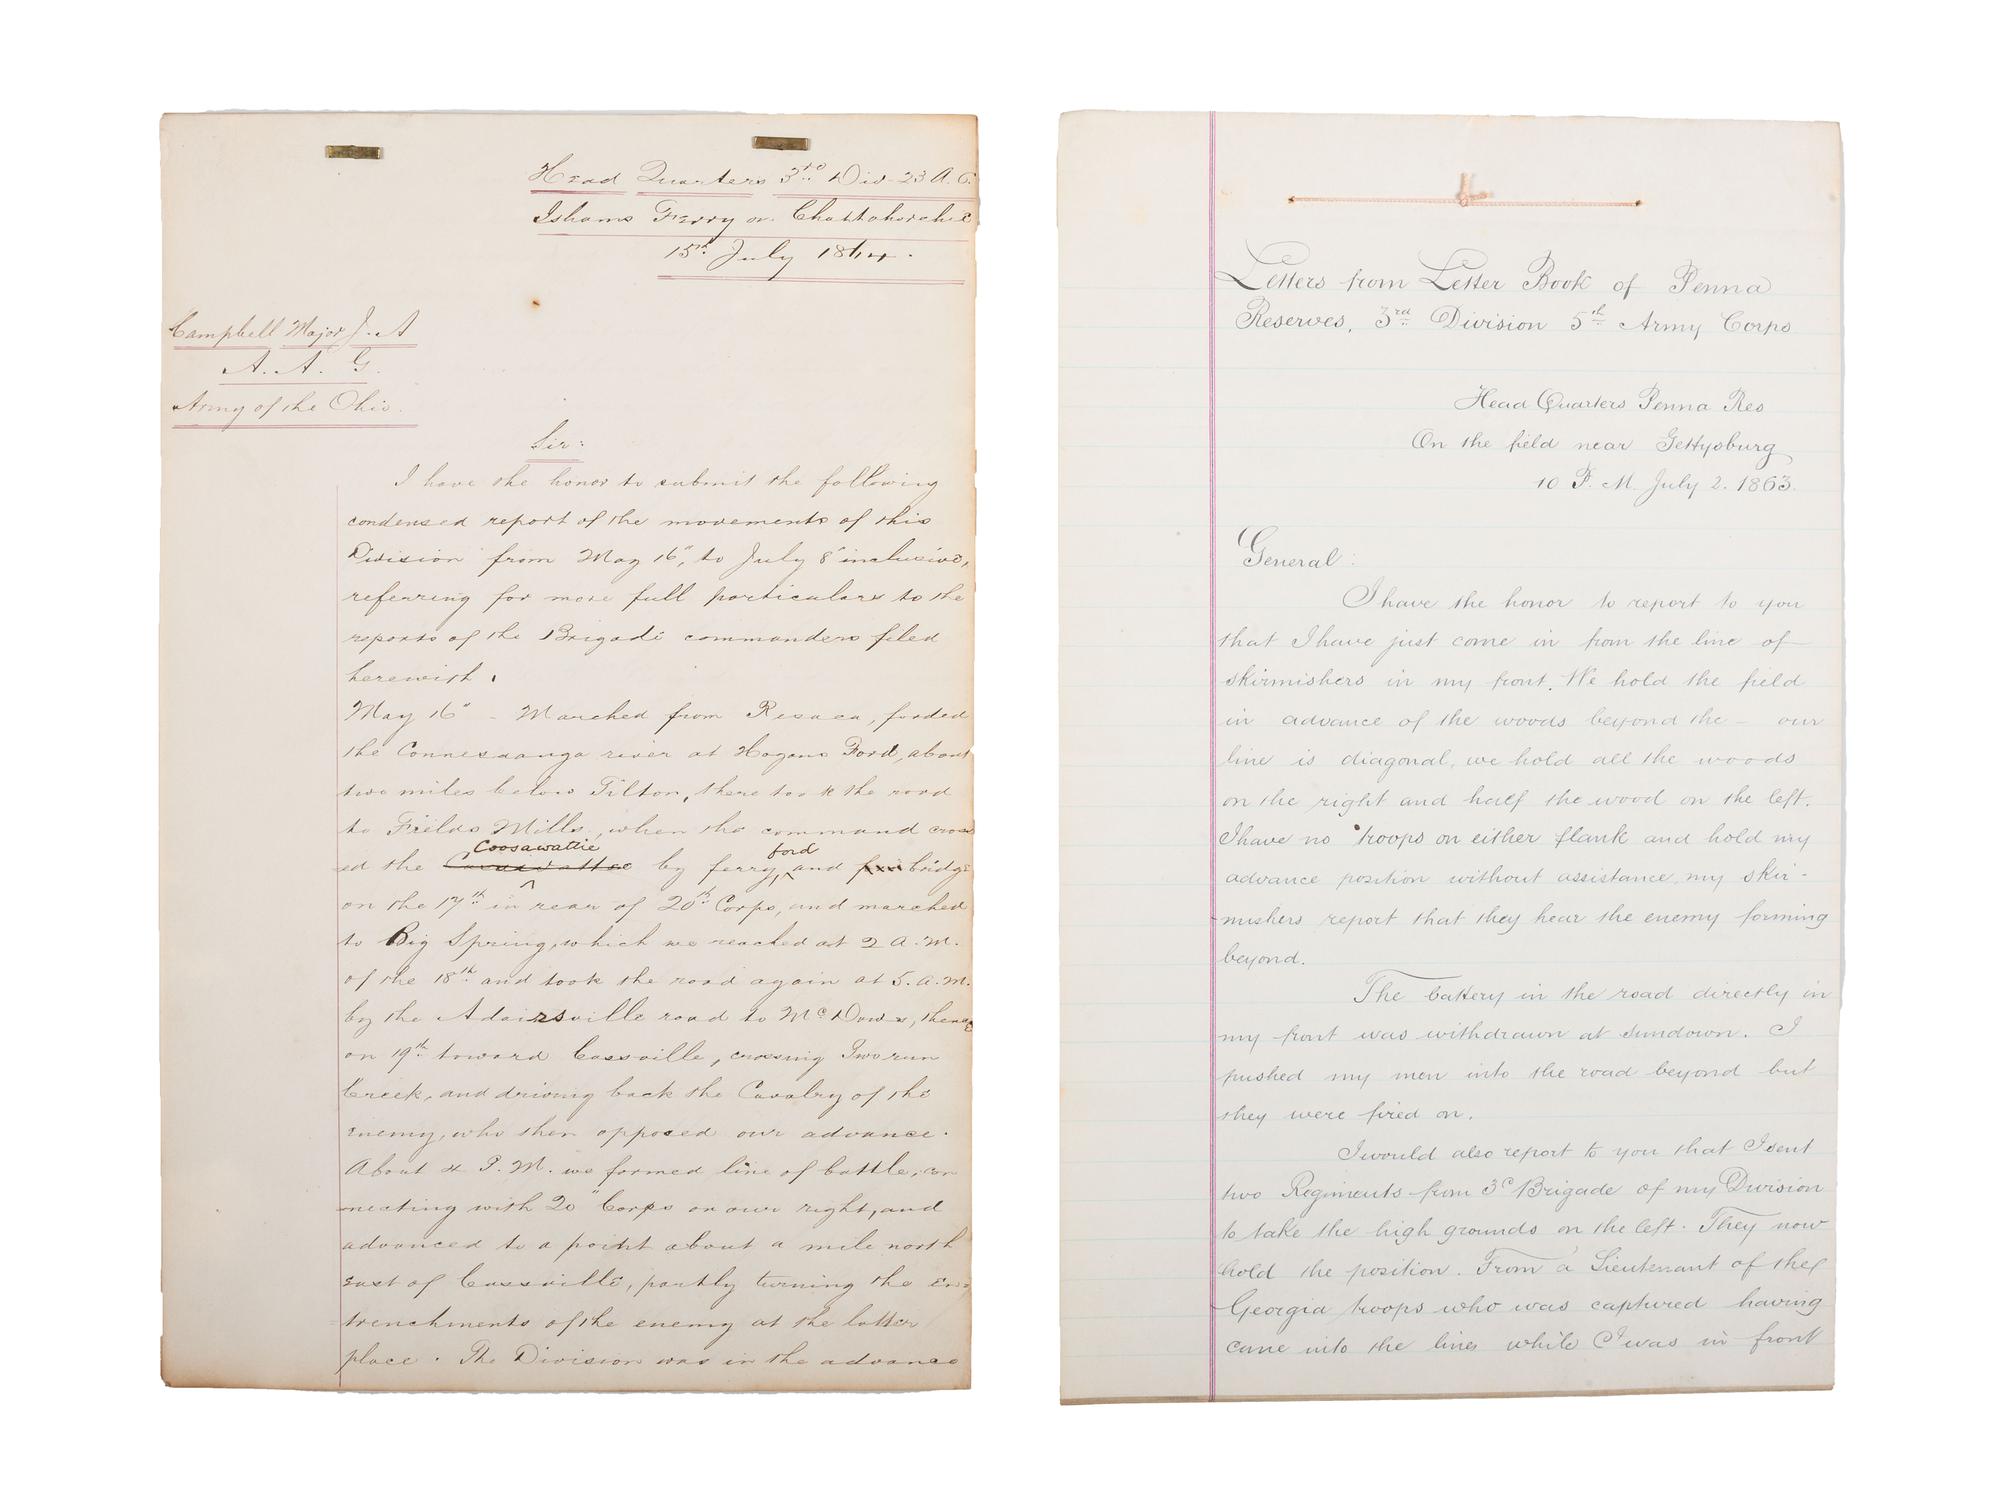 Head Quarters 3rd Div. 23 A. C.
Ishams Ferry on Chattahoochee
15th July 1864.
Campbell Major J. A
A. A. G.
Army of the Ohio.
Sir:
I have the honor to submit the following
condensed report of the movements of this
Division from May 16", to July 8" inclusive,
referring for more full particulars to the
reports of the Brigade commanders filed
herewith.
May 16" - Marched from Resaca, forded
the Connesauga river at Hogans Ford, about
two miles below Tilton, there took the road
to Fields Mills, when the command cross
Coosawattie ford
ed the by ferry, and bridge
on the 17th in rear of 20th Corps, and marched
to Big Spring, which we reached at 2 A. M.
of the 18th and took the road again at 5. a. m.
by the Adairsville road to McDows, thence
on 19th toward Cassville, crossing Two run
Creek, and driving back the Cavalry of the
enemy, who then opposed our advance.
About 4 P. M. we formed line of battle, con
necting with 20" Corps on our right, and
advanced to a point about a mile north
east of Cassville, partly turning the en
trenchments of the enemy at the latter
place. The Division was in the advance
Letters from Letter Book of Penna
Reserves, 3rd Division 5th Army Corps
Head Quarters Penna Res
On the field near Gettysburg
10 P. M. July 2. 1863.
General:
I have the honor to report to you
that I have just come in from the line of
skirmishers in my front. We hold the field
in advance of the woods beyond the — our
line is diagonal, we hold all the woods
on the right and half the wood on the left.
I have no troops on either flank and hold my
advance position without assistance, my skir-
mishers report that they hear the enemy forming
beyond.
The battery in the road directly in
my front was withdrawn at sundown. I
pushed my men into the road beyond but
they were fired on.
I would also report to you that I sent
two Regiments from 3d Brigade of my Division
to take the high grounds on the left. They now
hold the position. From a Lieutenant of the
Georgia troops who was captured having
come into the lines while I was in front